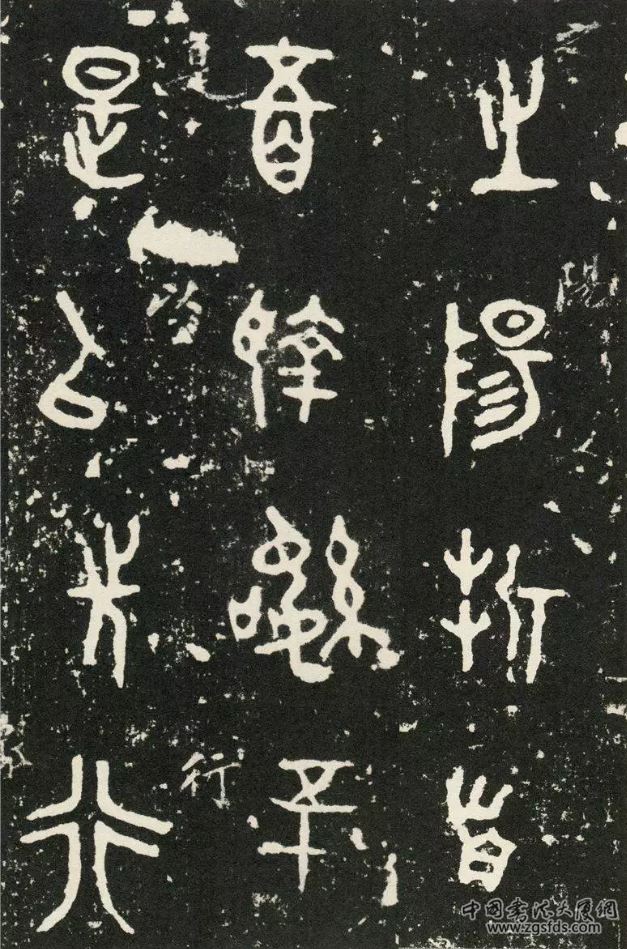 之陽折首
五百執訊五十
是以先行
行
中国书法
www.zgsfds.com